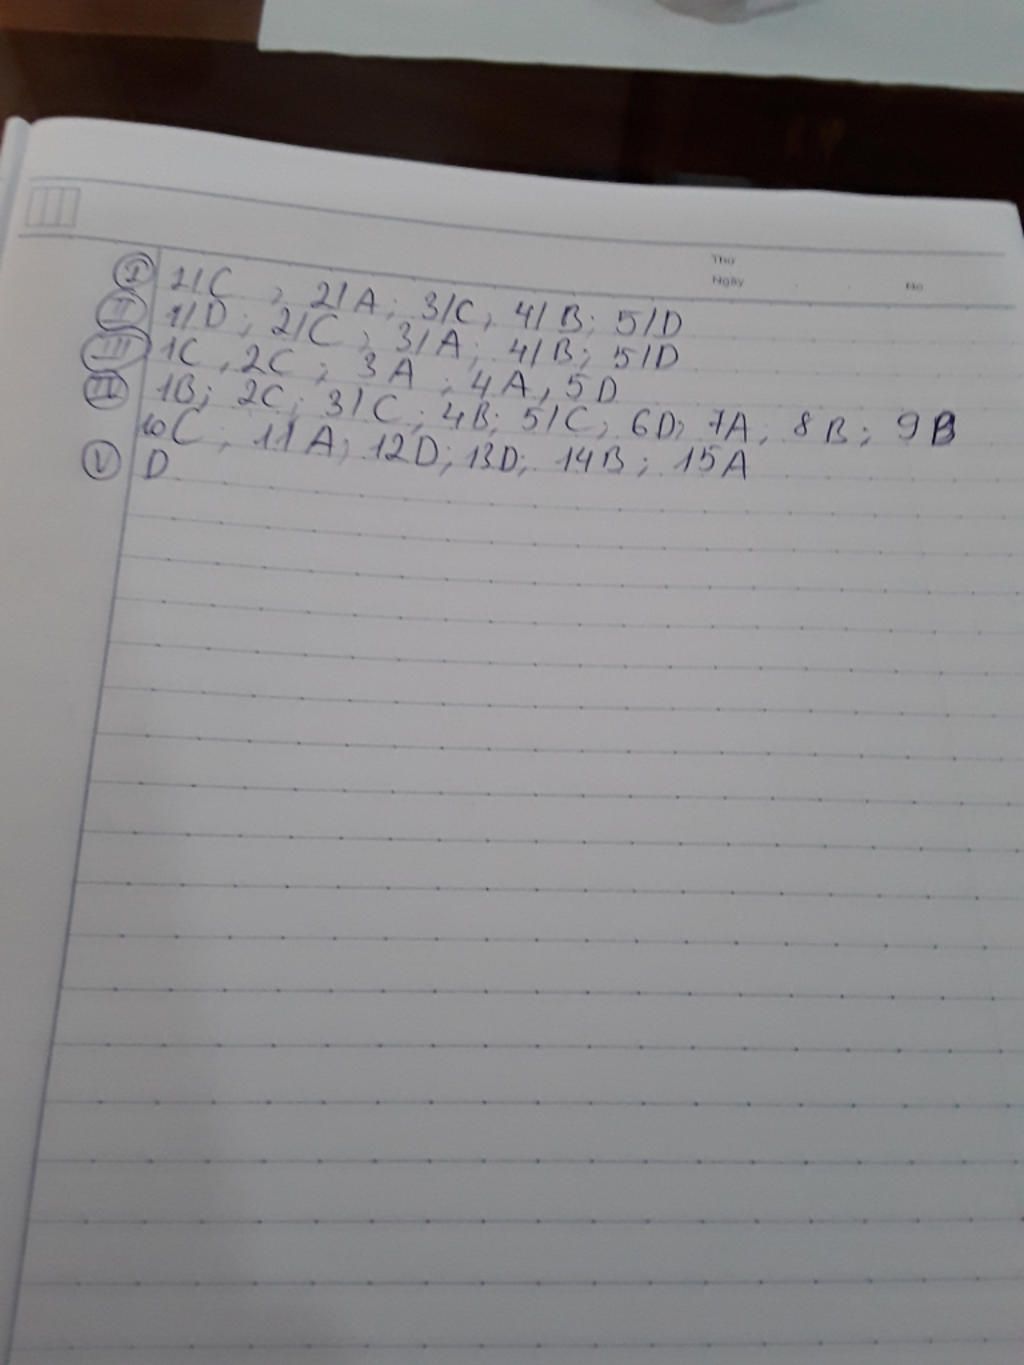 Thứ
Ngày No
I 1/C, 2/A; 3/C, 4/B; 5/D
II 1/D; 2/C; 3/A; 4/B; 5/D
III 1C, 2C; 3A; 4A, 5D
IV 1B; 2C; 3/C; 4B; 5/C; 6D; 7A; 8B; 9B
10C; 11A; 12D; 13D; 14B; 15A
V D